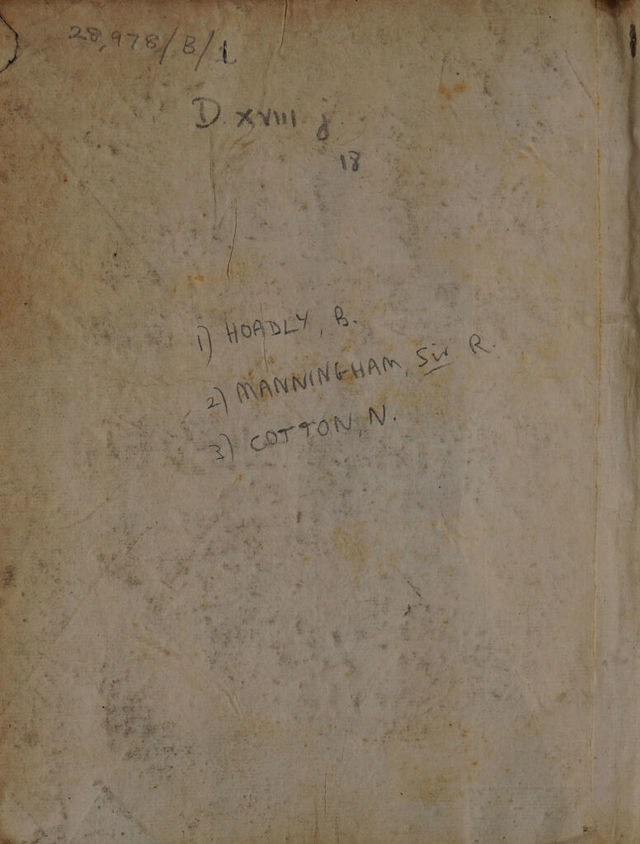 28,978/B/1
D. XVIII j
18
1) HOADLY, B.
2) MANNINGHAM, Sir R.
3) COTTON, N.